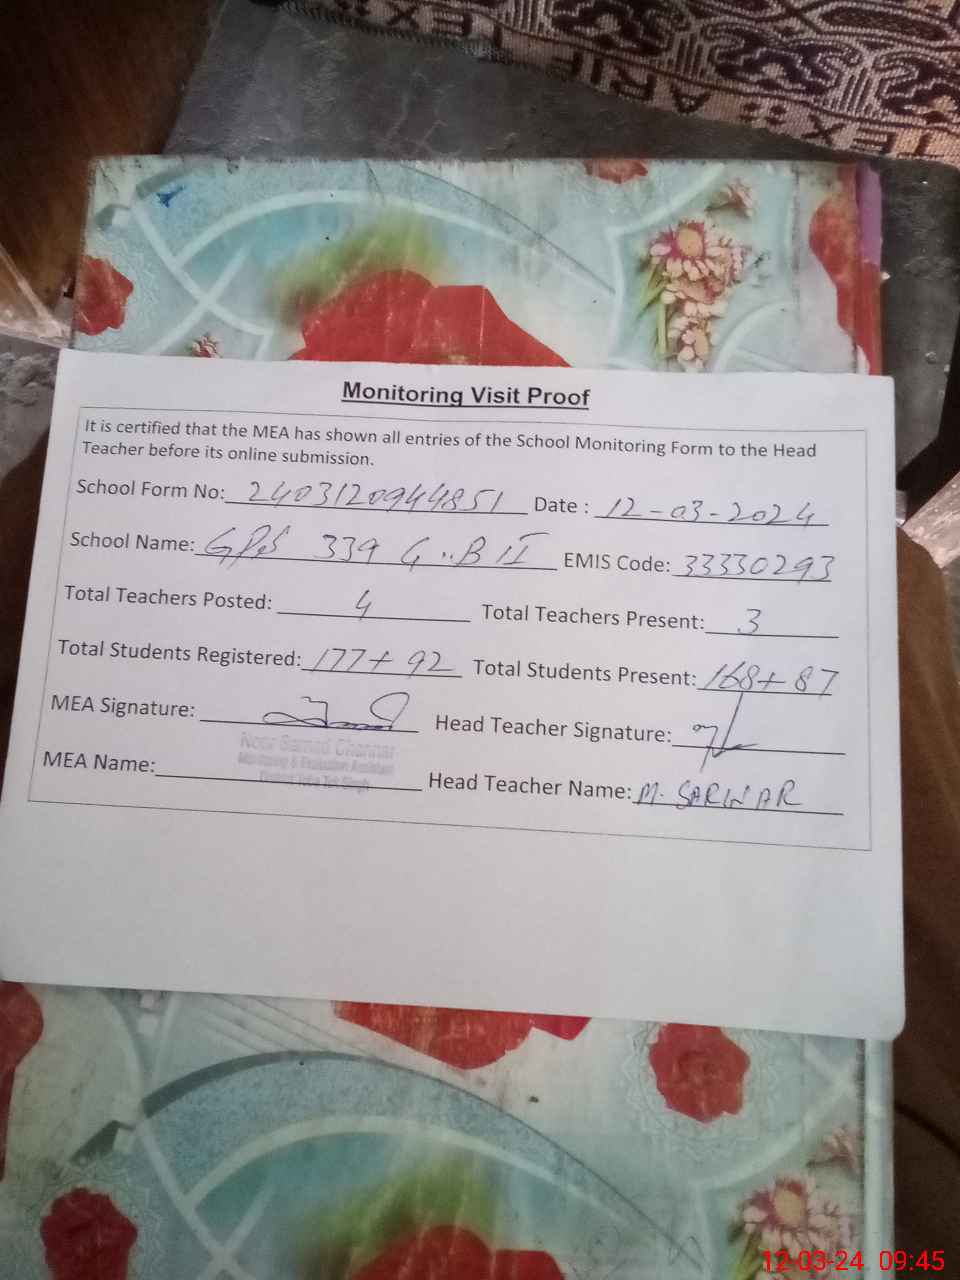 ARIF TEX
Monitoring Visit Proof
It is certified that the MEA has shown all entries of the School Monitoring Form to the Head
Teacher before its online submission.
School Form No: 2403120944851 Date : 12-03-2024
School Name: GPS 339 G..B II EMIS Code: 33330293
Total Teachers Posted: 4 Total Teachers Present: 3
Total Students Registered: 177+92 Total Students Present: 168+87
MEA Signature: Head Teacher Signature:
Noor Samad Channar
Monitoring & Evaluation Assistant
District Toba Tek Singh
MEA Name: Head Teacher Name: M. SARWAR
12-03-24 09:45